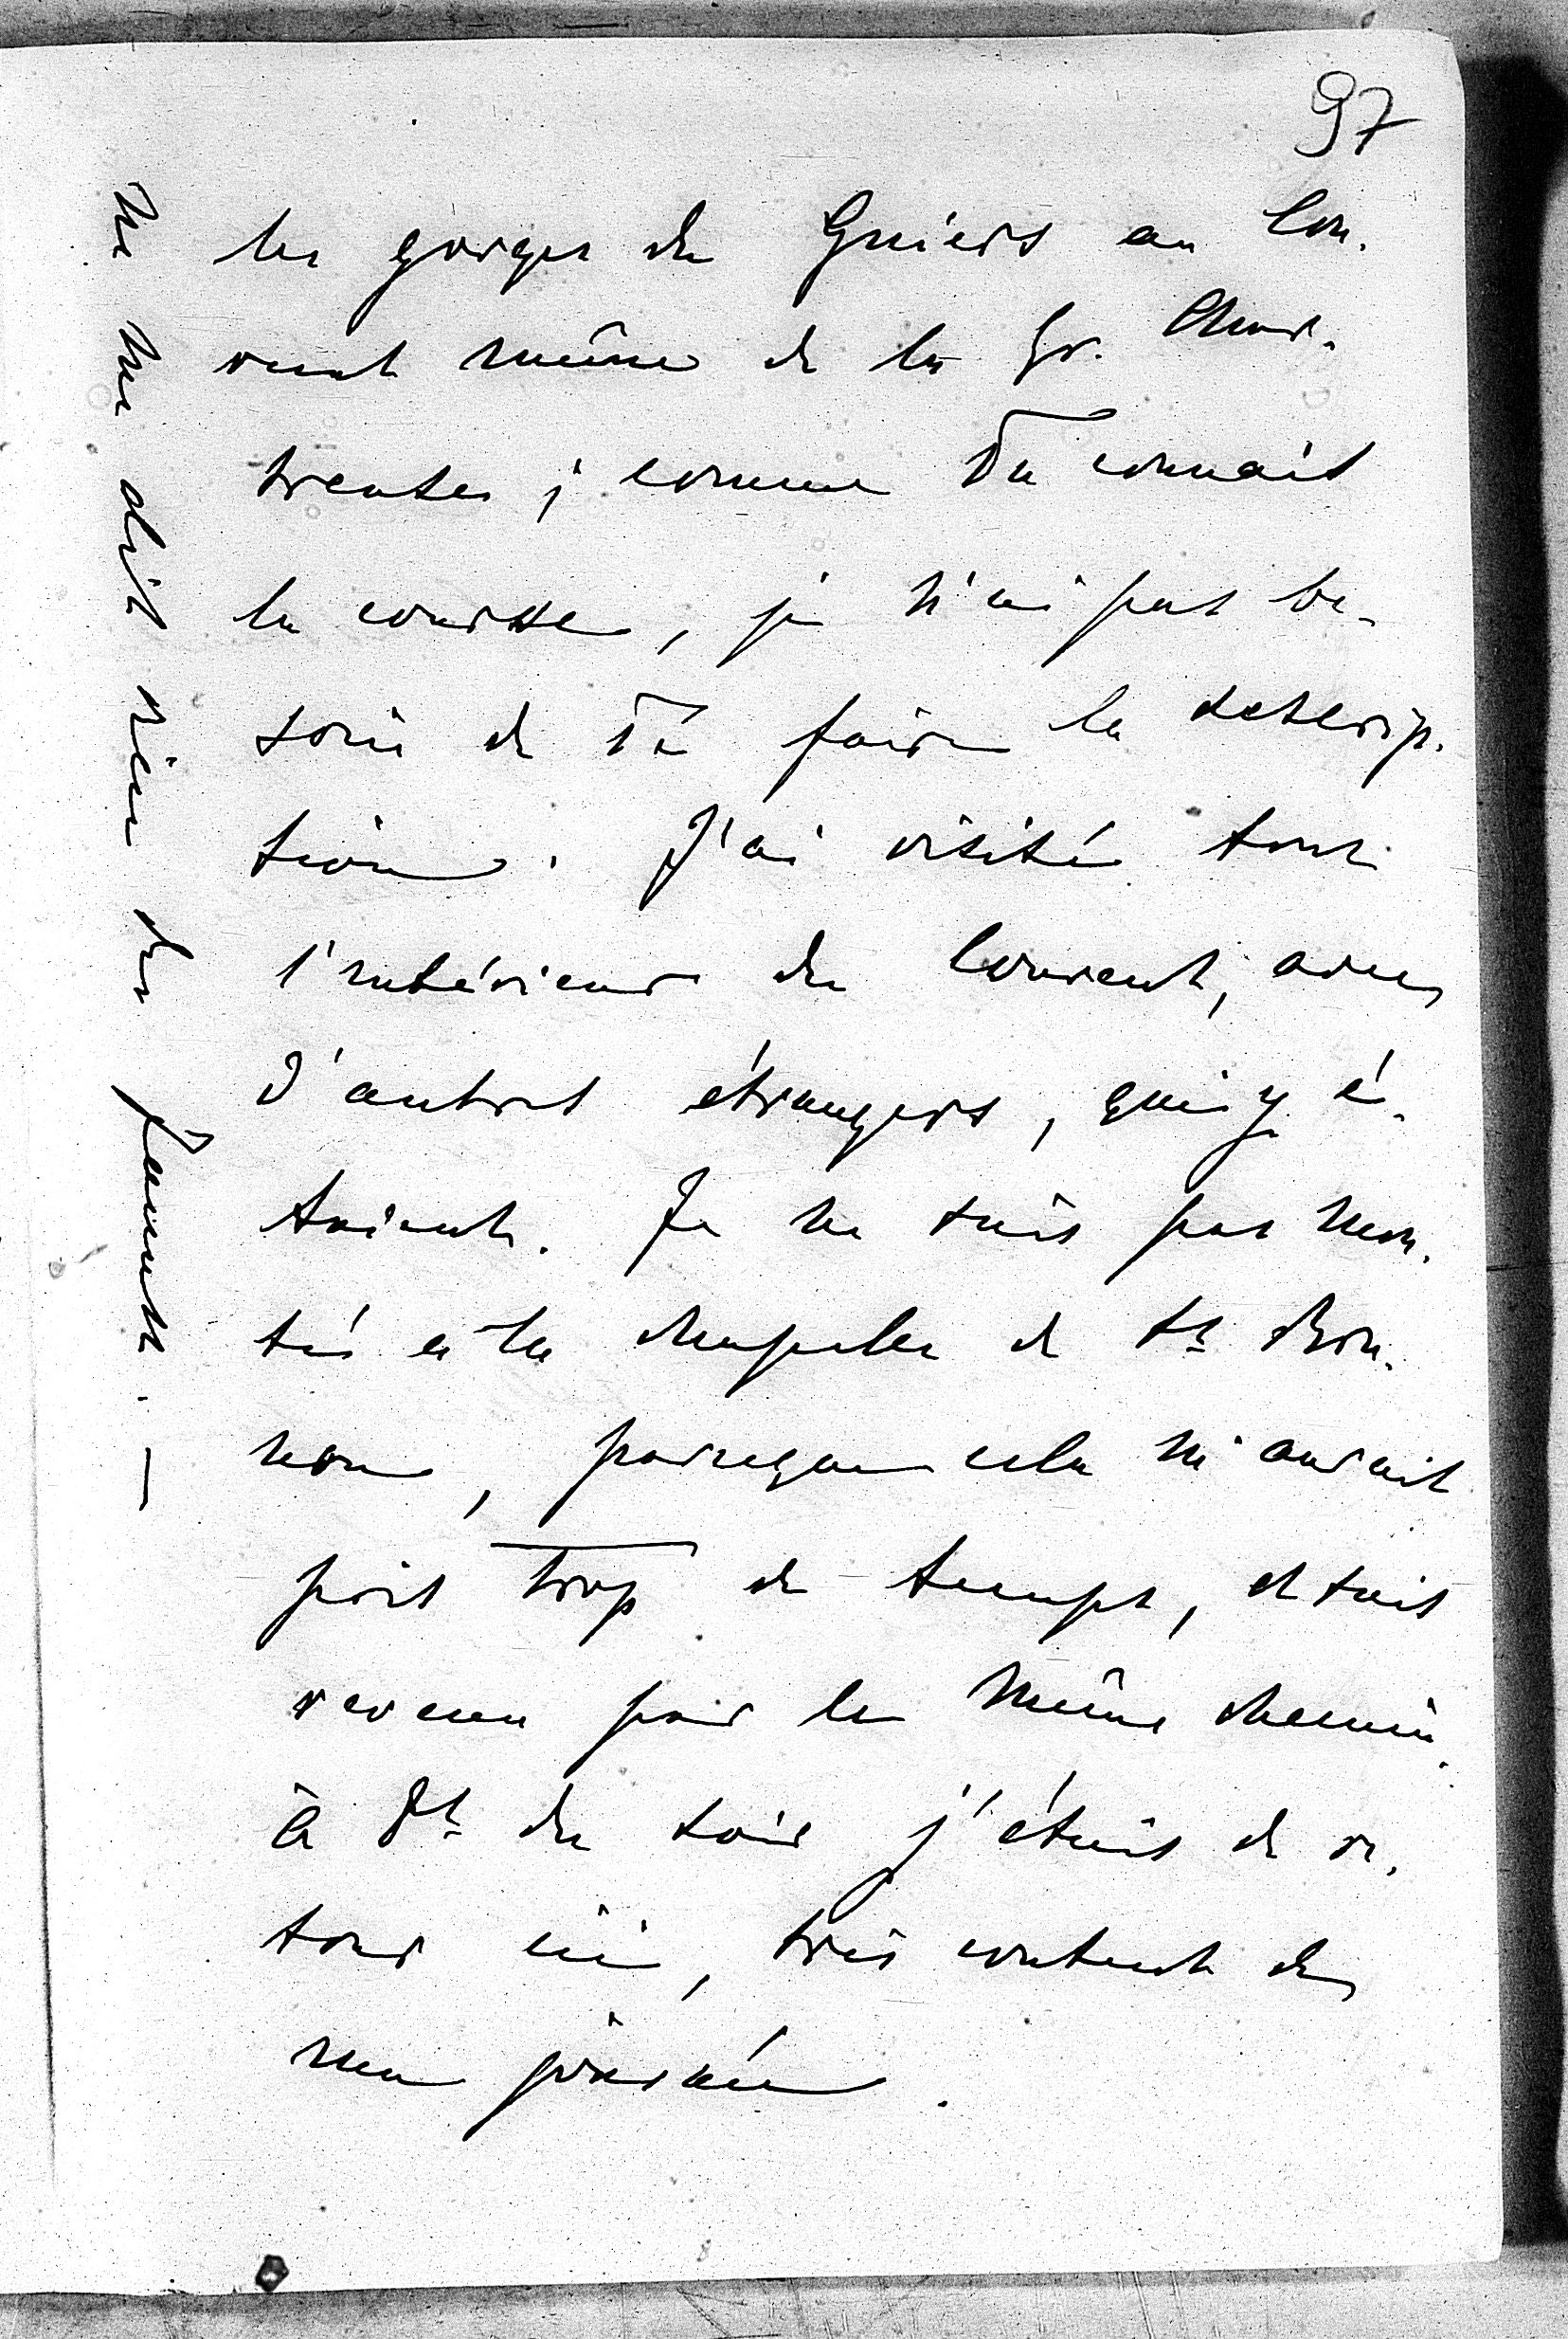 97
les gorges du Guiers au Cou-
vent même de la Gr. Char-
treuse ; comme Tu connais
la course, je n'ai pas be-
soin de T'en faire la descrip-
tion. J'ai visité tout
l'intérieur du Couvent, avec
d'autres étrangers, qui y é-
taient. Je ne suis pas mon-
té à la chapelle de St Bru-
non, parceque cela m'aurait
pris trop de temps, et suis
revenu par le même chemin.
à 8h du soir j'étais de re-
tour ici, très content de
ma journée.
ne me dit rien de